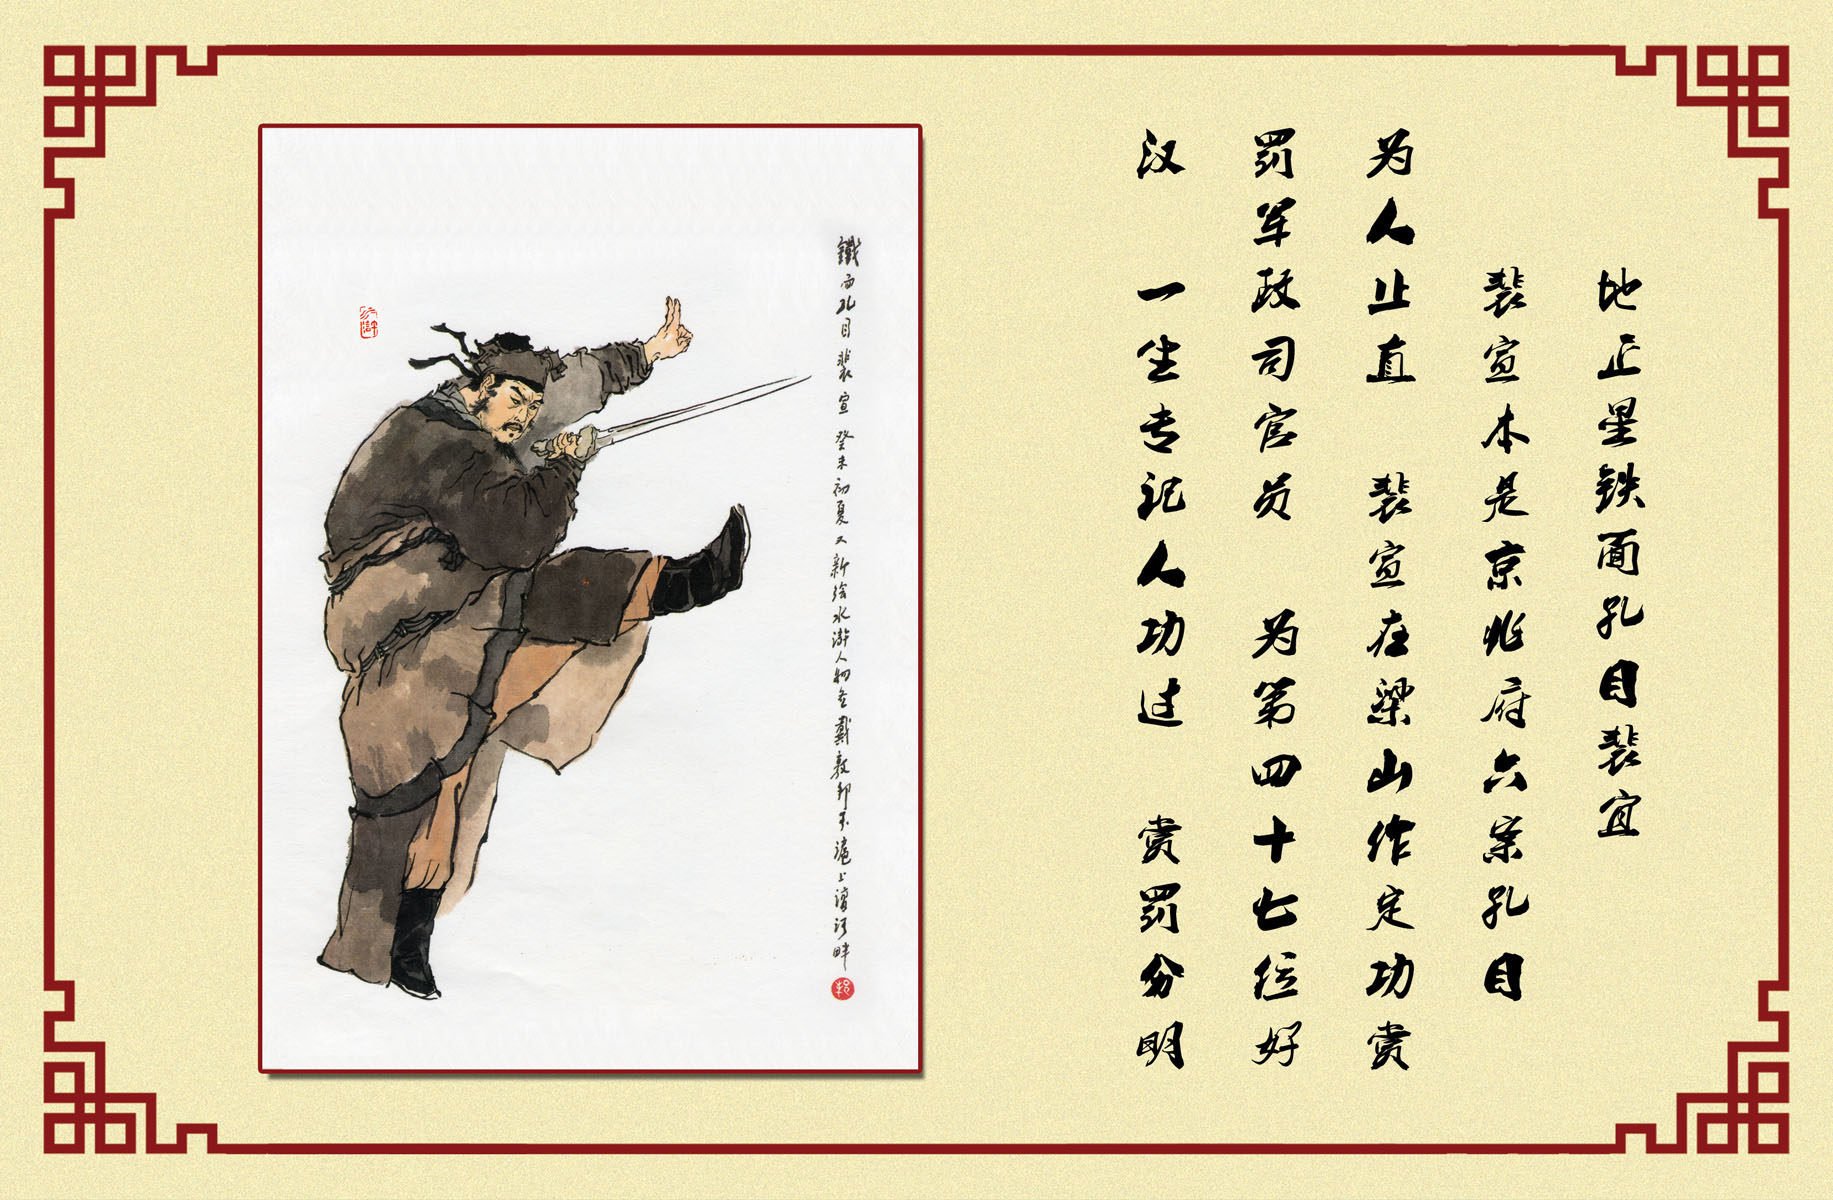 地正星铁面孔目裴宜
裴宣本是京兆府六案孔目
为人止直 裴宣在梁山作定功赏
罚军政司官员 为第四十七位好
汉 一生专记人功过 赏罚分明
鐵面孔目裴宣 癸未初夏又新绘水滸人物 戴敦邦于滬上漕河畔